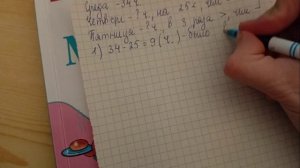 Среда - 34 ч
Четверг - ? ч, на 25 <, чем
Пятница - ? ч, в 3 раза >, чем
1) 34-25=9(ч.)-было